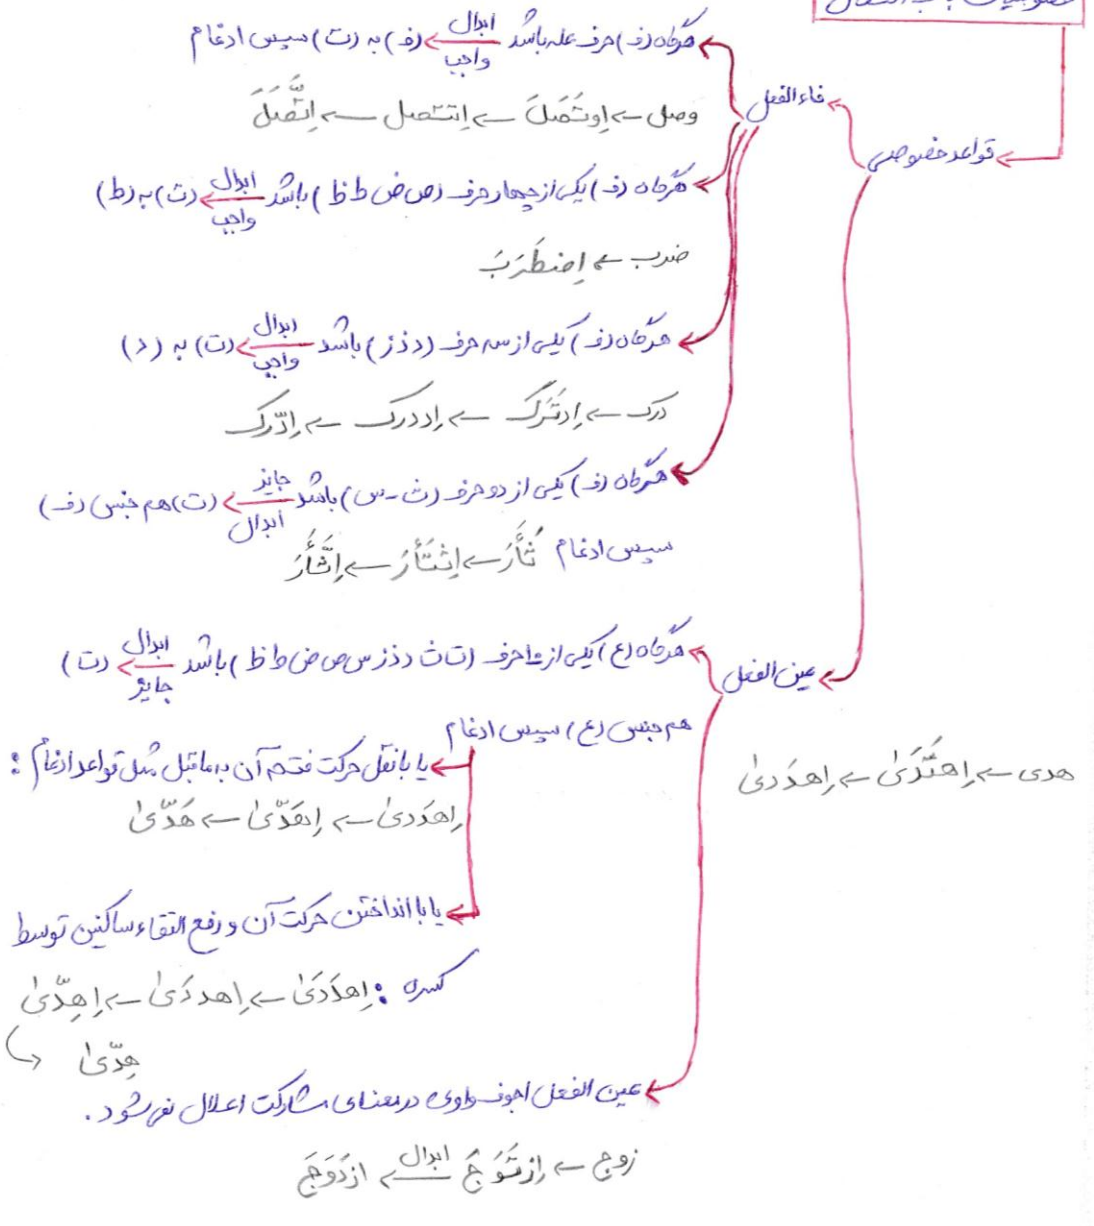 خصوصیات باب افتعال
قواعد خصوصی
فاء الفعل
هرگاه (ف) حرف عله باشد ابدال واجب (ف) به (ت) سپس ادغام
وصل ← اِوتَصَلَ ← اِتتصل ← اِتَّصَلَ
هرگاه (ف) یکی از چهار حرف (ص ض ط ظ) باشد ابدال واجب (ت) به (ط)
ضرب ← اِضطَرَبَ
هرگاه (ف) یکی از سه حرف (د ذ ز) باشد ابدال واجب (ت) به (د)
درک ← اِدتَرَکَ ← اِددرک ← اِدّرک
هرگاه (ف) یکی از دو حرف (ث - س) باشد جایز ابدال (ت) هم جنس (ف)
سپس ادغام ثَأَرَ ← اِثتَأَرَ ← اِثَّأَرَ
عین الفعل
هرگاه (ع) یکی از حرف (ت ث د ذ ز س ص ض ط ظ) باشد ابدال جایز (ت)
هم جنس (ع) سپس ادغام
هدی ← اِهتَدَیٰ ← اِهدَدیٰ
یا با نقل حرکت فتحه آن به ماقبل مثل قواعد ادغام :
اِهدَدیٰ ← اِهَدّیٰ ← هَدّیٰ
یا با انداختن حرکت آن و رفع التقاء ساکنین توسط
کسره : اِهدَدَیٰ ← اِهددَیٰ ← اِهِدّیٰ
هِدّیٰ
عین الفعل اجوف واوی در معنای مشارکت اعلال نمی شود .
زوج ← اِزتَوَجَ ابدال ← ازدَوَجَ